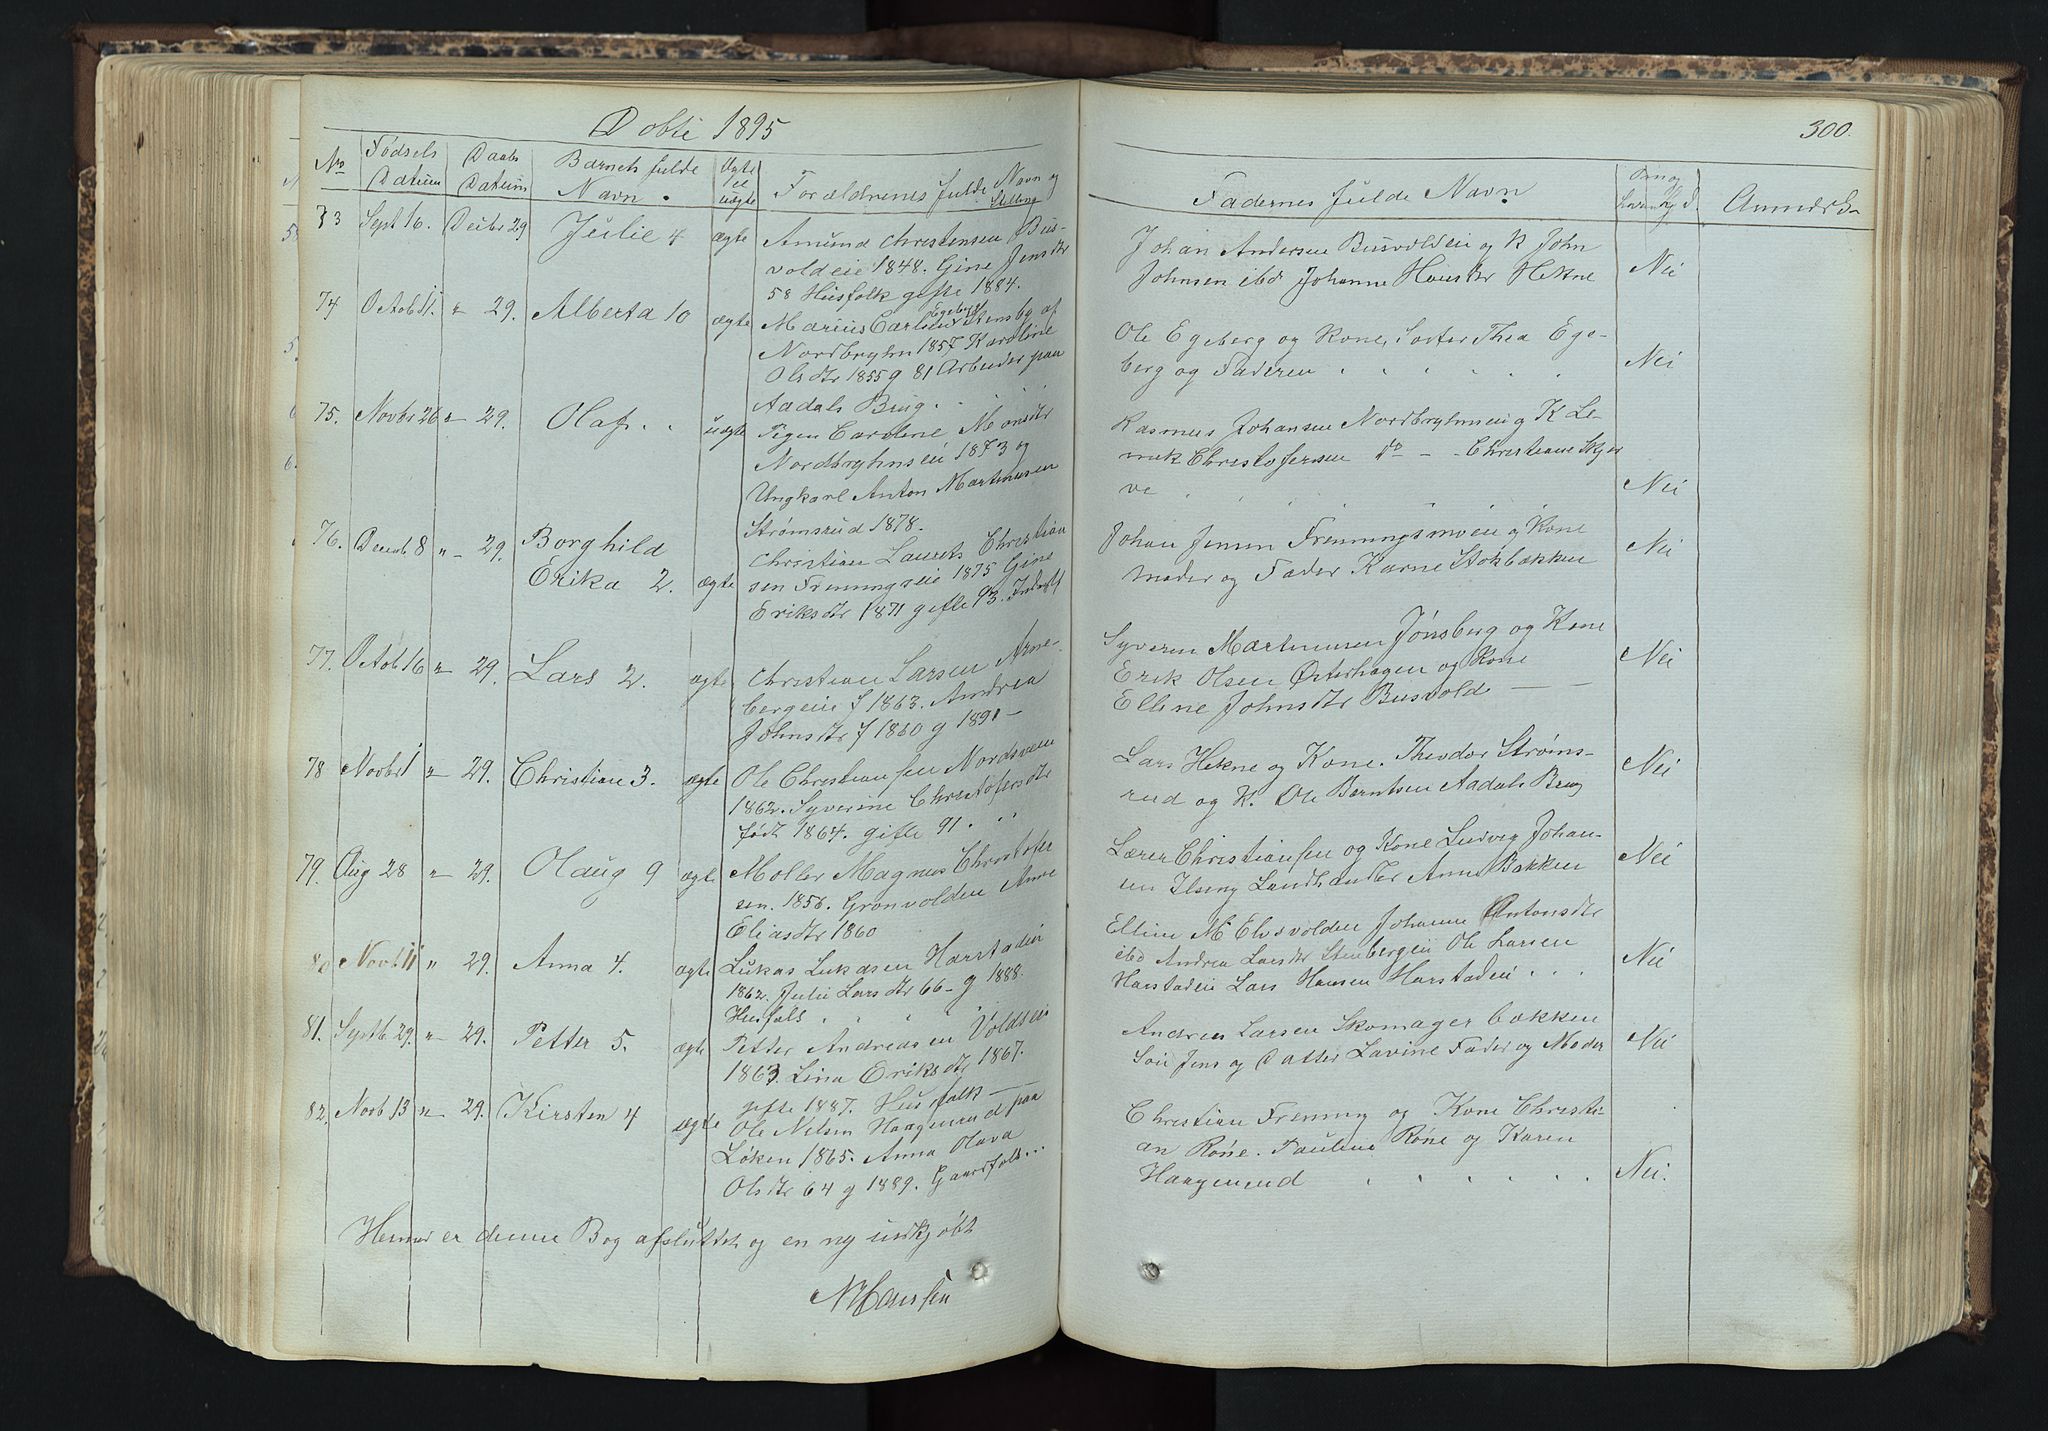 Døbte 1895
No Fødsels Datum Daabs Datum Barnets fulde Navn. Ægte el uægte Forældrenes fulde Navn og Stilling
73 Septb 16. Decbr 29 Julie 4 ægte Amund Christensen Bus-
voldeie 1848. Gine Jensdtr
58 Husfolk gifte 1884.
74 Octob 11. " 29. Alberta 10 ægte Marius Carlsen Egeberg Stensby af
Nordbryhn 1857 Karoline
Olsdtr 1855 g 81 Arbeider paa
Aadals Brug.
75. Novbr 26 " 29. Olaf. uægte Pigen Caroline Monsdtr
Nordbryhnseie 1873 og
Ungkarl Anton Martinusen
Strømsrud 1878.
76. Decemb 8 " 29. Borghild
Erika 2. ægte Christian Laurets Christian
sen Freningseie 1875 Gine
Eriksdtr 1871 gifte 93.
77. Octob 16 " 29. Lars 2. ægte Christian Larsen Arne-
bergeie f 1863. Andrea
Johnsdtr f 1860 g 1891 -
78 Novbr 1 " 29. Christian 3. ægte Ole Christiansen Nordsveen
1862. Syverine Christofersdtr
født 1864. gifte 91.
79. Aug 28 " 29. Olaug 9 ægte Møller Magnus Christofer
sen. 1856. Grønvolden Anne
Eliasdtr 1860
80 Novb 11 " 29. Anna 4. ægte Lukas Lukasen Harstadeie
1862. Julie Larsdtr 66 - g 1888.
Husfolk
81. Septb 29. " 29. Petter 5. ægte Petter Andreasen Voldseie
1863. Lina Eriksdtr 1867.
gifte 1887. Husfolk -
82. Novb 13 " 29. Kirsten 4 ægte Ole Nelsen Haagenrud paa
Løken 1865. Anna Olava
Olsdtr 64 g 1889. Gaardfolk...
Hermed er denne Bog afsluttet og en ny indkjøbt
N Hansen
300.
Faddernes fulde Navn. Anmerk-
Johan Andersen Busvoldeie og K John
Johnsen ibd Johanne Hansdtr Hekne Nei
Ole Egeberg og Kone, Søster Thea Ege-
berg og Faderen Nei
Rasmus Johansen Nordbryhnseie og K Le-
Christofersen do - - Christiane Skjer
ve Nei
Johan Jensen Freningsmoen og Kone
moder og Fader Karne Stokbakken Nei
Syveren Martinusen Jønsberg og Kone
Erik Olsen Østerhagen og Kone Nei
Elline Johnsdtr Busvold -
Lars Hekne og Kone. Theodor Strøms-
rud og K. Ole Berntsen Aadals Brug Nei
Lærer Christiansen og Kone Ludvig Johan-
sen Ilseng Landhandler Anne Bakken Nei
Elline M Elvsvolden Johanne Antonsdtr
ibd Andrea Larsdtr Stenbergeie Ole Larsen
Harstadeie Lars Hansen Harstadeie Nei
Andreas Larsen Skomagerbakken
Søn Jens og Datter Lavine Fader og Moder Nei
Christian Frenning og Kone Christi-
an Røne. Pauline Røne og Karen
Haagenrud Nei.